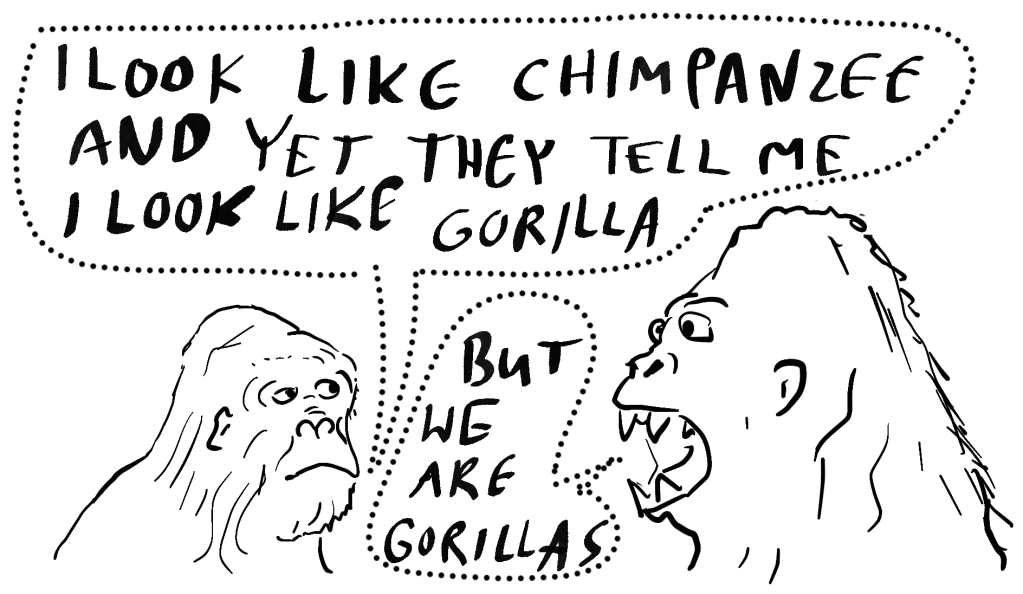 I LOOK LIKE CHIMPANZEE
AND YET THEY TELL ME
I LOOK LIKE GORILLA
BUT
WE
ARE
GORILLAS